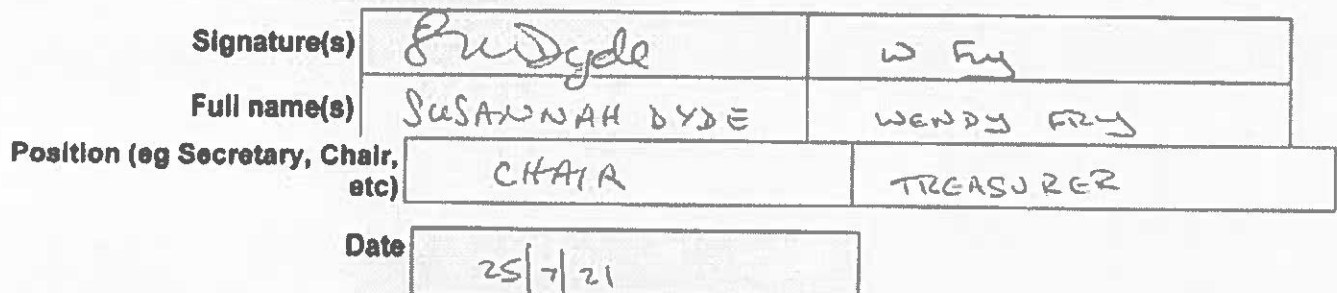 Signature(s) SMDyde W Fry
Full name(s) SUSANNAH DYDE WENDY FRY
Position (eg Secretary, Chair, etc) CHAIR TREASURER
Date 25/7/21